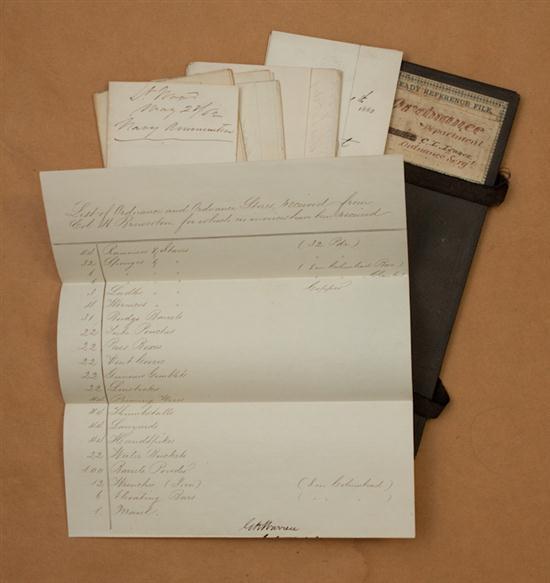 May 27/62
Navy Ammunition
1862
READY REFERENCE FILE.
Ordnance
Department
Ordnance Serg't.
List of Ordnance and Ordnance Stores received from
Col. for which no invoices have been received
44 Rammers & Staves (32 Pdr.)
32 Sponges & " "
6 " " (8 in Columbiad Bar)
6 " "
3 Ladles " " Copper
4 Wormers " "
31 Budge Barrels
22 Tube Pouches
22 Pass Boxes
22 Vent Covers
22 Gunners Gimblets
22 Linstocks
44 Priming Wires
44 Thumbstalls
44 Lanyards
44 Handspikes
22 Water Buckets
100 Barrels Powder
12 Wrenches (Iron) (8 in Columbiad)
6 Elevating Bars ( " " )
1 Maul
Warren